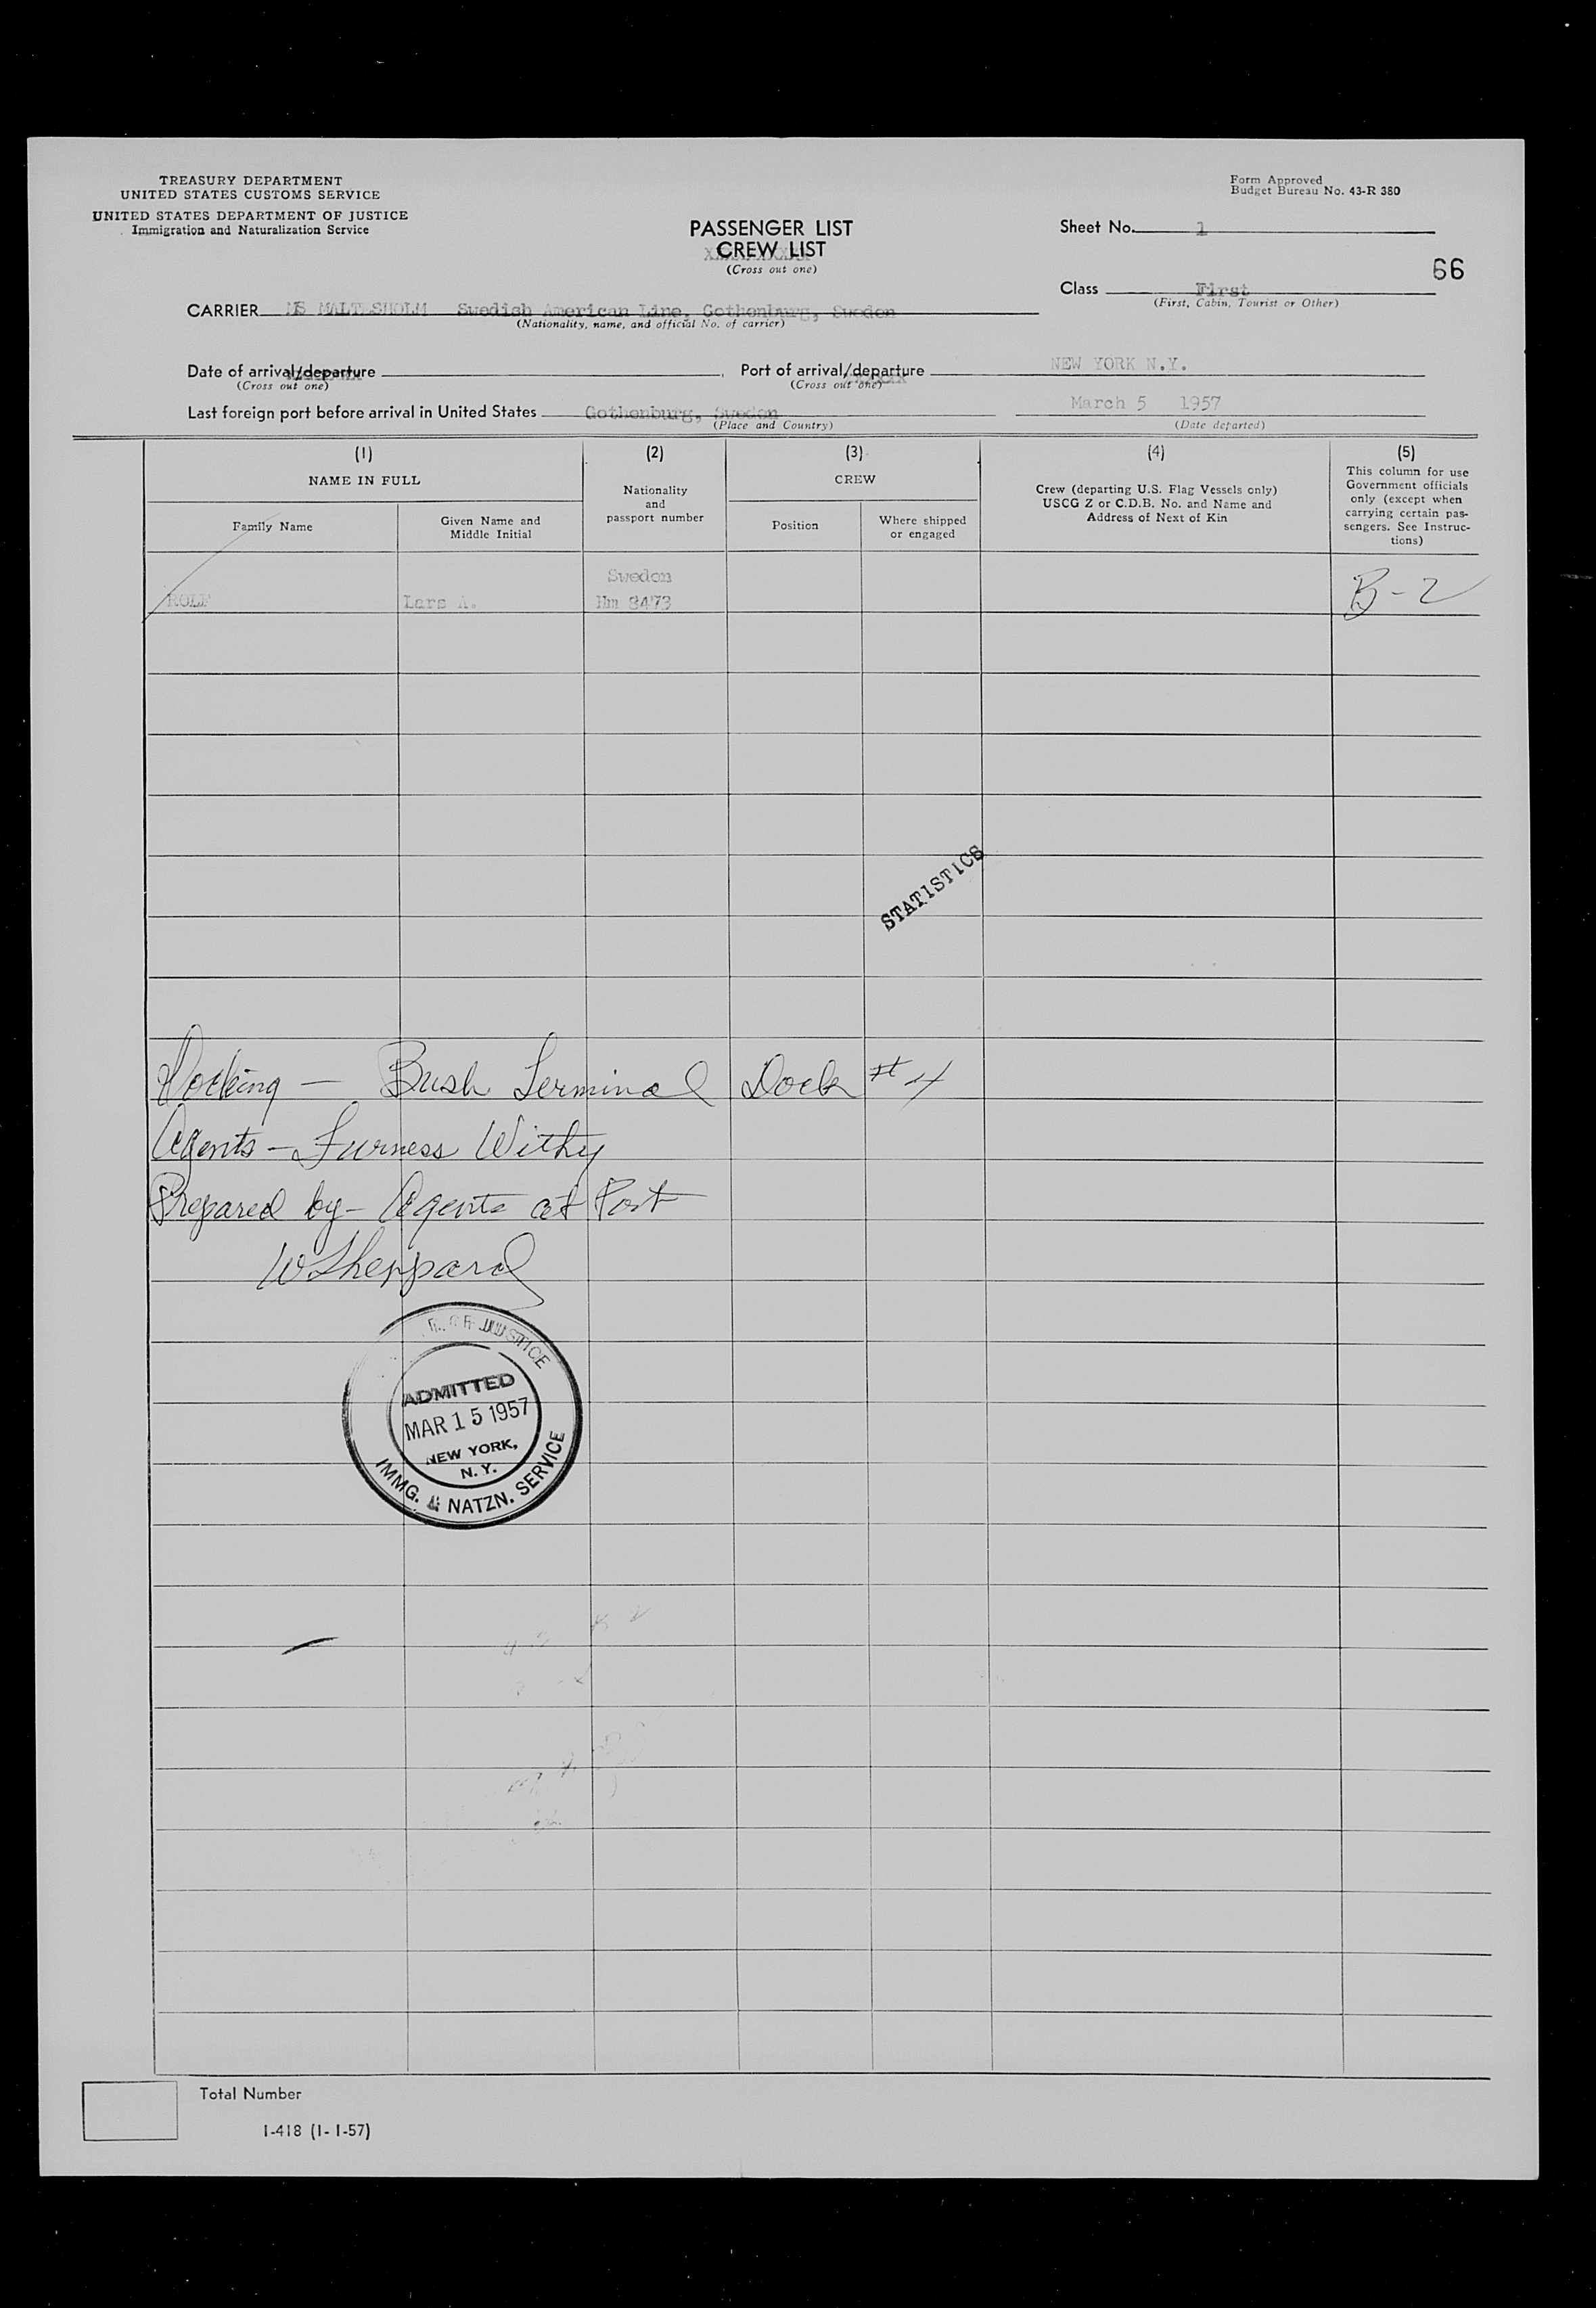 TREASURY DEPARTMENT
UNITED STATES CUSTOMS SERVICE
UNITED STATES DEPARTMENT OF JUSTICE
Immigration and Naturalization Service
Form Approved
Budget Bureau No. 43-R 380
PASSENGER LIST
CREW LIST
(Cross out one)
Sheet No. 1
66
Class First
(First, Cabin, Tourist or Other)
CARRIER MS MALTESHOLM Swedish American Line, Gothenburg, Sweden
(Nationality, name, and official No. of carrier)
Date of arrival/departure
(Cross out one)
Port of arrival/departure NEW YORK N.Y.
(Cross out one)
Last foreign port before arrival in United States Gothenburg, Sweden March 5 1957
(Place and Country) (Date departed)
(1) (2) (3) (4) (5)
NAME IN FULL
Family Name
Given Name and
Middle Initial
Nationality
and
passport number
CREW
Position
Where shipped
or engaged
Crew (departing U.S. Flag Vessels only)
USCG Z or C.D.B. No. and Name and
Address of Next of Kin
This column for use
Government officials
only (except when
carrying certain pas-
sengers. See Instruc-
tions)
Sweden
ROLF Lars A. Hm 8473 B-2
STATISTICS
Docking - Bush Terminal Dock # 4
Agents - Furness Withy
Prepared by - Agents at Port
W Sheppard
JUSTICE
ADMITTED
MAR 15 1957
NEW YORK,
N. Y.
IMMG. & NATZN. SERVICE
Total Number
I-418 (1-1-57)